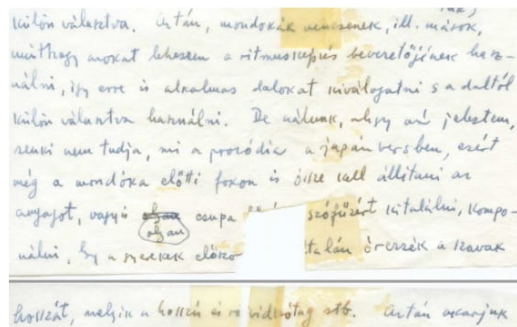 külön választva. Aztán, mondókák nincsenek, ill. mások,
minthogy azokat lehessen a ritmusképzés bevezetőjének hasz-
nálni, így erre is alkalmas dalokat kiválogatni s a daltól
külön választva használni. De nálunk, ahogy már jeleztem,
senki nem tudja, mi a prozódia a japán versben, ezért
még a mondóka előtti fokon is össze kell állítani az
anyagot, vagyis olyan csupa szófűzért kitalálni, kompo-
nálni, hogy a gyerekek először érezzék a szavak
hosszát, melyik a hosszú és rövid szótag stb. Aztán akarjuk